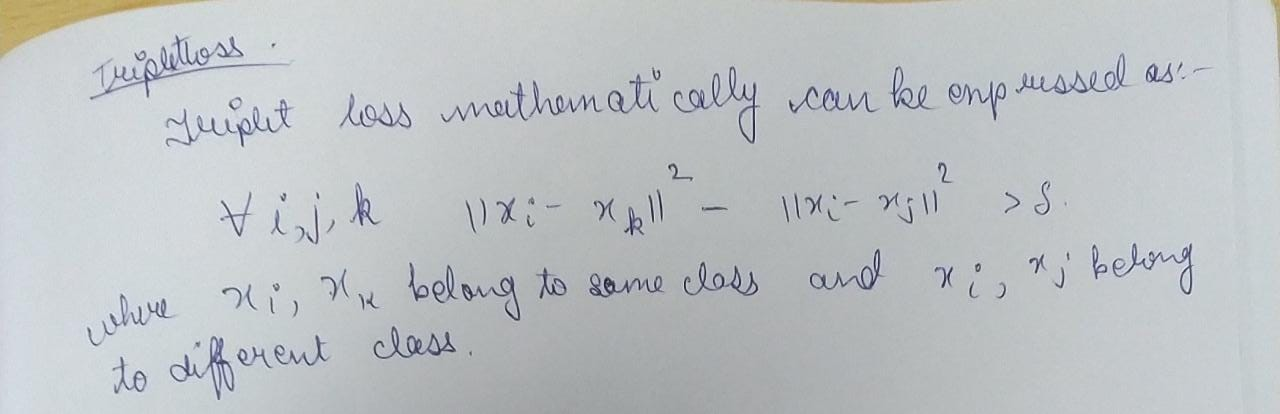 Tripletloss.
Triplet loss mathematically can be expressed as:-
∀ i, j, k ||xᵢ - xₖ||² - ||xᵢ - xⱼ||² > δ.
where xᵢ, xₖ belong to same class and xᵢ, xⱼ belong
to different class.